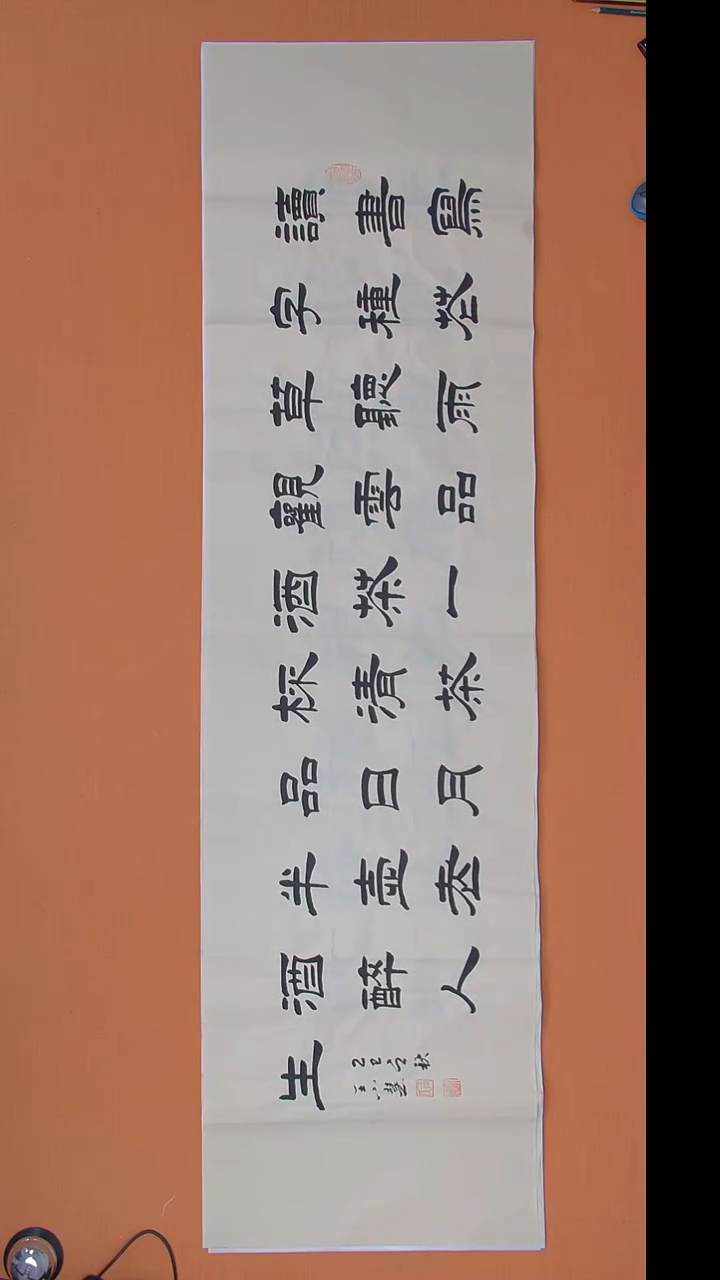 讀書寫
字種花
草聽雨
觀雲品
酒茶一
杯清茶
品日月
半壺老
酒醉人
生
乙巳之秋
王小慧